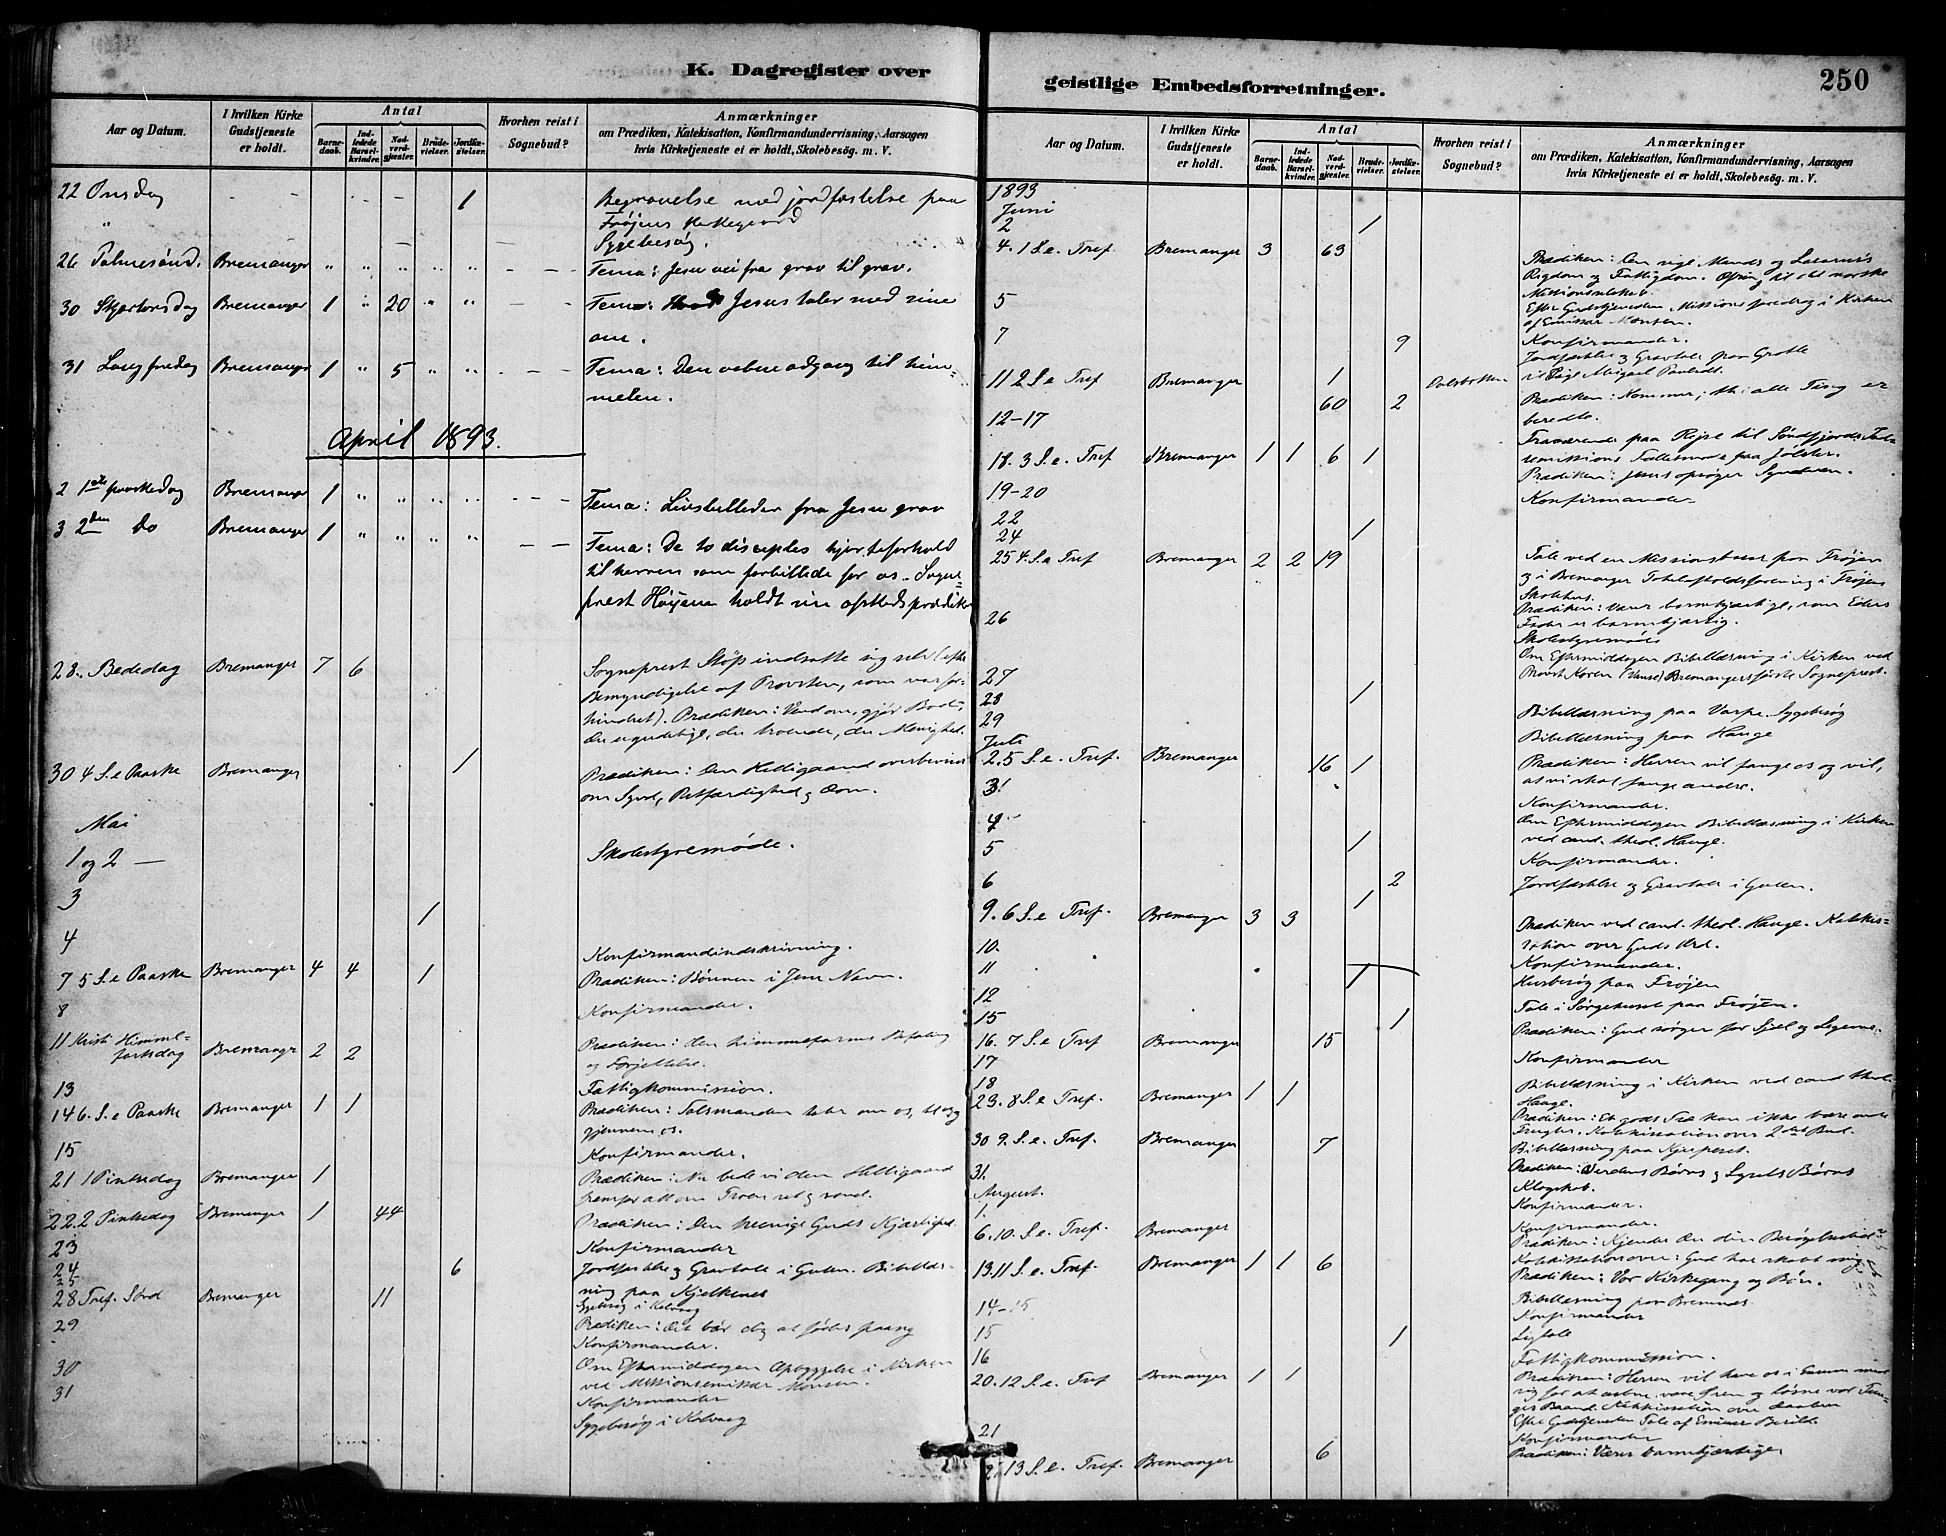 K. Dagregister over
geistlige Embedsforretninger.
250
Aar og Datum.
I hvilken Kirke Gudstjeneste er holdt.
Antal
Barnedaab.
Indledede Barselkvinder.
Nadverdgjester.
Brudevielser.
Jordfæstelser.
Hvorhen reist i Sognebud?
Anmærkninger
om Prædiken, Katekisation, Konfirmandundervisning, Aarsagen
hvis Kirketjeneste ei er holdt, Skolebesøg. m. V.
22 Onsdag - - - - - 1 Begravelse med jordfæstelse paa
" Frøjens Kirkegaard
Sygebesøg.
26 Palmesønd. Bremanger " " " " " - - - Tema: Jesu vei fra grav til grav.
30 Skjærtorsdag Bremanger 1 " 20 " " - - Tema: Jesus taler med sine
om.
31 Langfredag Bremanger 1 " 5 " " - - - Tema: Den aabne adgang til him-
melen.
April 1893.
2 1ste paaskedag Bremanger 1 " " " " - - - Tema: Livsbilleder fra Jesu grav
3 2den do Bremanger 1 " " " " - - Tema: De to disciples hjerteforhold
til herren som forbillede for os. Sogne-
prest holdt sin afskedsprædiken
28. Bededag Bremanger 7 6 Sogneprest Støp indsatte sig selv (efter
Bemyndigelse af Provsten, som var for-
hindret). Prædiken: Vend om, gjør Bod,
du ugudelige, du troende, du Menighed.
30 4 S.e Paaske Bremanger 1 Prædiken: Den Helligaand overbeviser
om Synd, Retfærdighed og Dom.
Mai
1 og 2 — Skolestyremøde.
3 1
4 Konfirmandindskrivning.
7 5 S.e Paaske Bremanger 4 4 1 Prædiken: Bønnen i Jesu Navn.
8 Konfirmander.
11 Kristi Himmel-
fartsdag Bremanger 2 2 Prædiken: den himmelfarnes Befaling
og Forjettelse.
13 Fattigkommission.
14 6. S.e Paaske Bremanger 1 1 Prædiken: Talsmanden taler om os, til og
gjennem os.
15 Konfirmander.
21 1 Pinsedag Bremanger 1 Prædiken: Nu bede vi den Helligaand
fremfor alt om Troen ret og sand.
22. 2 Pinsedag Bremanger 1 44 Prædiken: Den Guds Kjærlighed.
23 Konfirmander
24 6 Jordfæstelse og Gravtale i Gulen. Bibellæs-
25 ning paa Kjelkenes
Sygebesøg i Kalvaag
28 Tref. Sønd Bremanger 11 Prædiken: Det bør dig at fødes paany
29 Konfirmander.
30 Om Eftermiddagen Opbyggelse i Kirken
ved Missionsemissær Monsen.
31 Konfirmander
Sygebesøg i Kalvaag
Aar og Datum.
I hvilken Kirke Gudstjeneste er holdt.
Antal
Barnedaab.
Indledede Barselkvinder.
Nadverdgjester.
Brudevielser.
Jordfæstelser.
Hvorhen reist i Sognebud?
Anmærkninger
om Prædiken, Katekisation, Konfirmandundervisning, Aarsagen
hvis Kirketjeneste ei er holdt, Skolebesøg. m. V.
1893
Juni
2 1
4. 1 S.e. Tref Bremanger 3 63 Prædiken: Den rige Mands og Lazarus's
Rigdom og Fattigdom. Ofring til det norske
Missionsselskab.
Efter Gudstjenesten Missionsforedrag i Kirken
af Emissær Monsen.
5 Konfirmander.
7 9 Jordfæstelse og Gravtale paa Grotle
11 2 S.e Tref Bremanger 1
60 2 Prædiken: Kommer, thi alle Ting er
beredte.
12-17 Fraværende paa Rejse til Søndfjords
Fællesmøde paa Jølster.
18. 3 S.e. Tref Bremanger 1 1 6 1 Prædiken: Jesus opsøger Synderen.
19-20 Konfirmander
22
24 1
25 4. S.e Tref Bremanger 2 2 19 Tale ved en paa Frøjen
og i Bremanger Totalafholdsforening i Frøjens
Skolehus.
Prædiken: Værer barmhjærtige, som Eders
Fader er barmhjærtig.
26 Skolestyremøde
Om Eftermiddagen Bibellæsning i Kirken ved
Provst Koren Bremangers første Sogneprest.
27
28 1 Bibellæsning paa Varpe. Sygebesøg
29 Bibellæsning paa Hauge
Juli
2. 5 S.e. Tref. Bremanger 16 1 Prædiken: Herren vil fange os og vil,
at vi skal fange andre.
3 Konfirmander.
4 Om Eftermiddagen Bibellæsning i Kirken
ved cand. theol. Hauge.
5 1 Konfirmander.
6 2 Jordfæstelse og Gravtale i Gulen.
9. 6 S.e Tref. Bremanger 3 3 1 Prædiken ved cand. theol. Hauge. Katekis-
ation over Guds Ord.
10. Konfirmander.
11 1 Husbesøg paa Frøjen
12 Tale i Sørgehuset paa Frøjen.
15 1
16. 7 S.e Tref Bremanger 15 Prædiken: Gud sørger for Sjel og Legeme.
17 Konfirmander
18 Bibellæsning i Kirken ved cand theol
Hauge.
23. 8 S.e Tref. Bremanger 1 1 Prædiken: Et godt Træ kan ikke bære onde
Frugter. Katekisation over 2det Bud.
Bibellæsning paa
30 9. S.e. Tref. Bremanger 7 Prædiken: Verdens Børns og Lysets Børns
Klogskab.
31. Konfirmander.
August.
1. Konfirmander.
6. 10. S.e. Tref. Bremanger Prædiken: Kjender du din Besøgelsestid?
Katekisation over: Gud har skabt mig
13. 11 S.e. Tref. Bremanger 1 1 6 Prædiken: Vor Kirkegang og Bøn.
Bibellæsning paa Bremnes
14-15 Konfirmander
15 1 Ligtale
16 Fattigkommission.
20. 12 S.e. Tref Bremanger 1 1 Prædiken: Herren vil have os i Enrum med
sig for at aabne vore Øren og løsne vor Tun-
ges Baand. Katekisation over Daaben
Efter Gudstjenesten Tale af
21 Konfirmander
13 S.e. Tref. Bremanger 6 Prædiken: Værer barmhjærtige